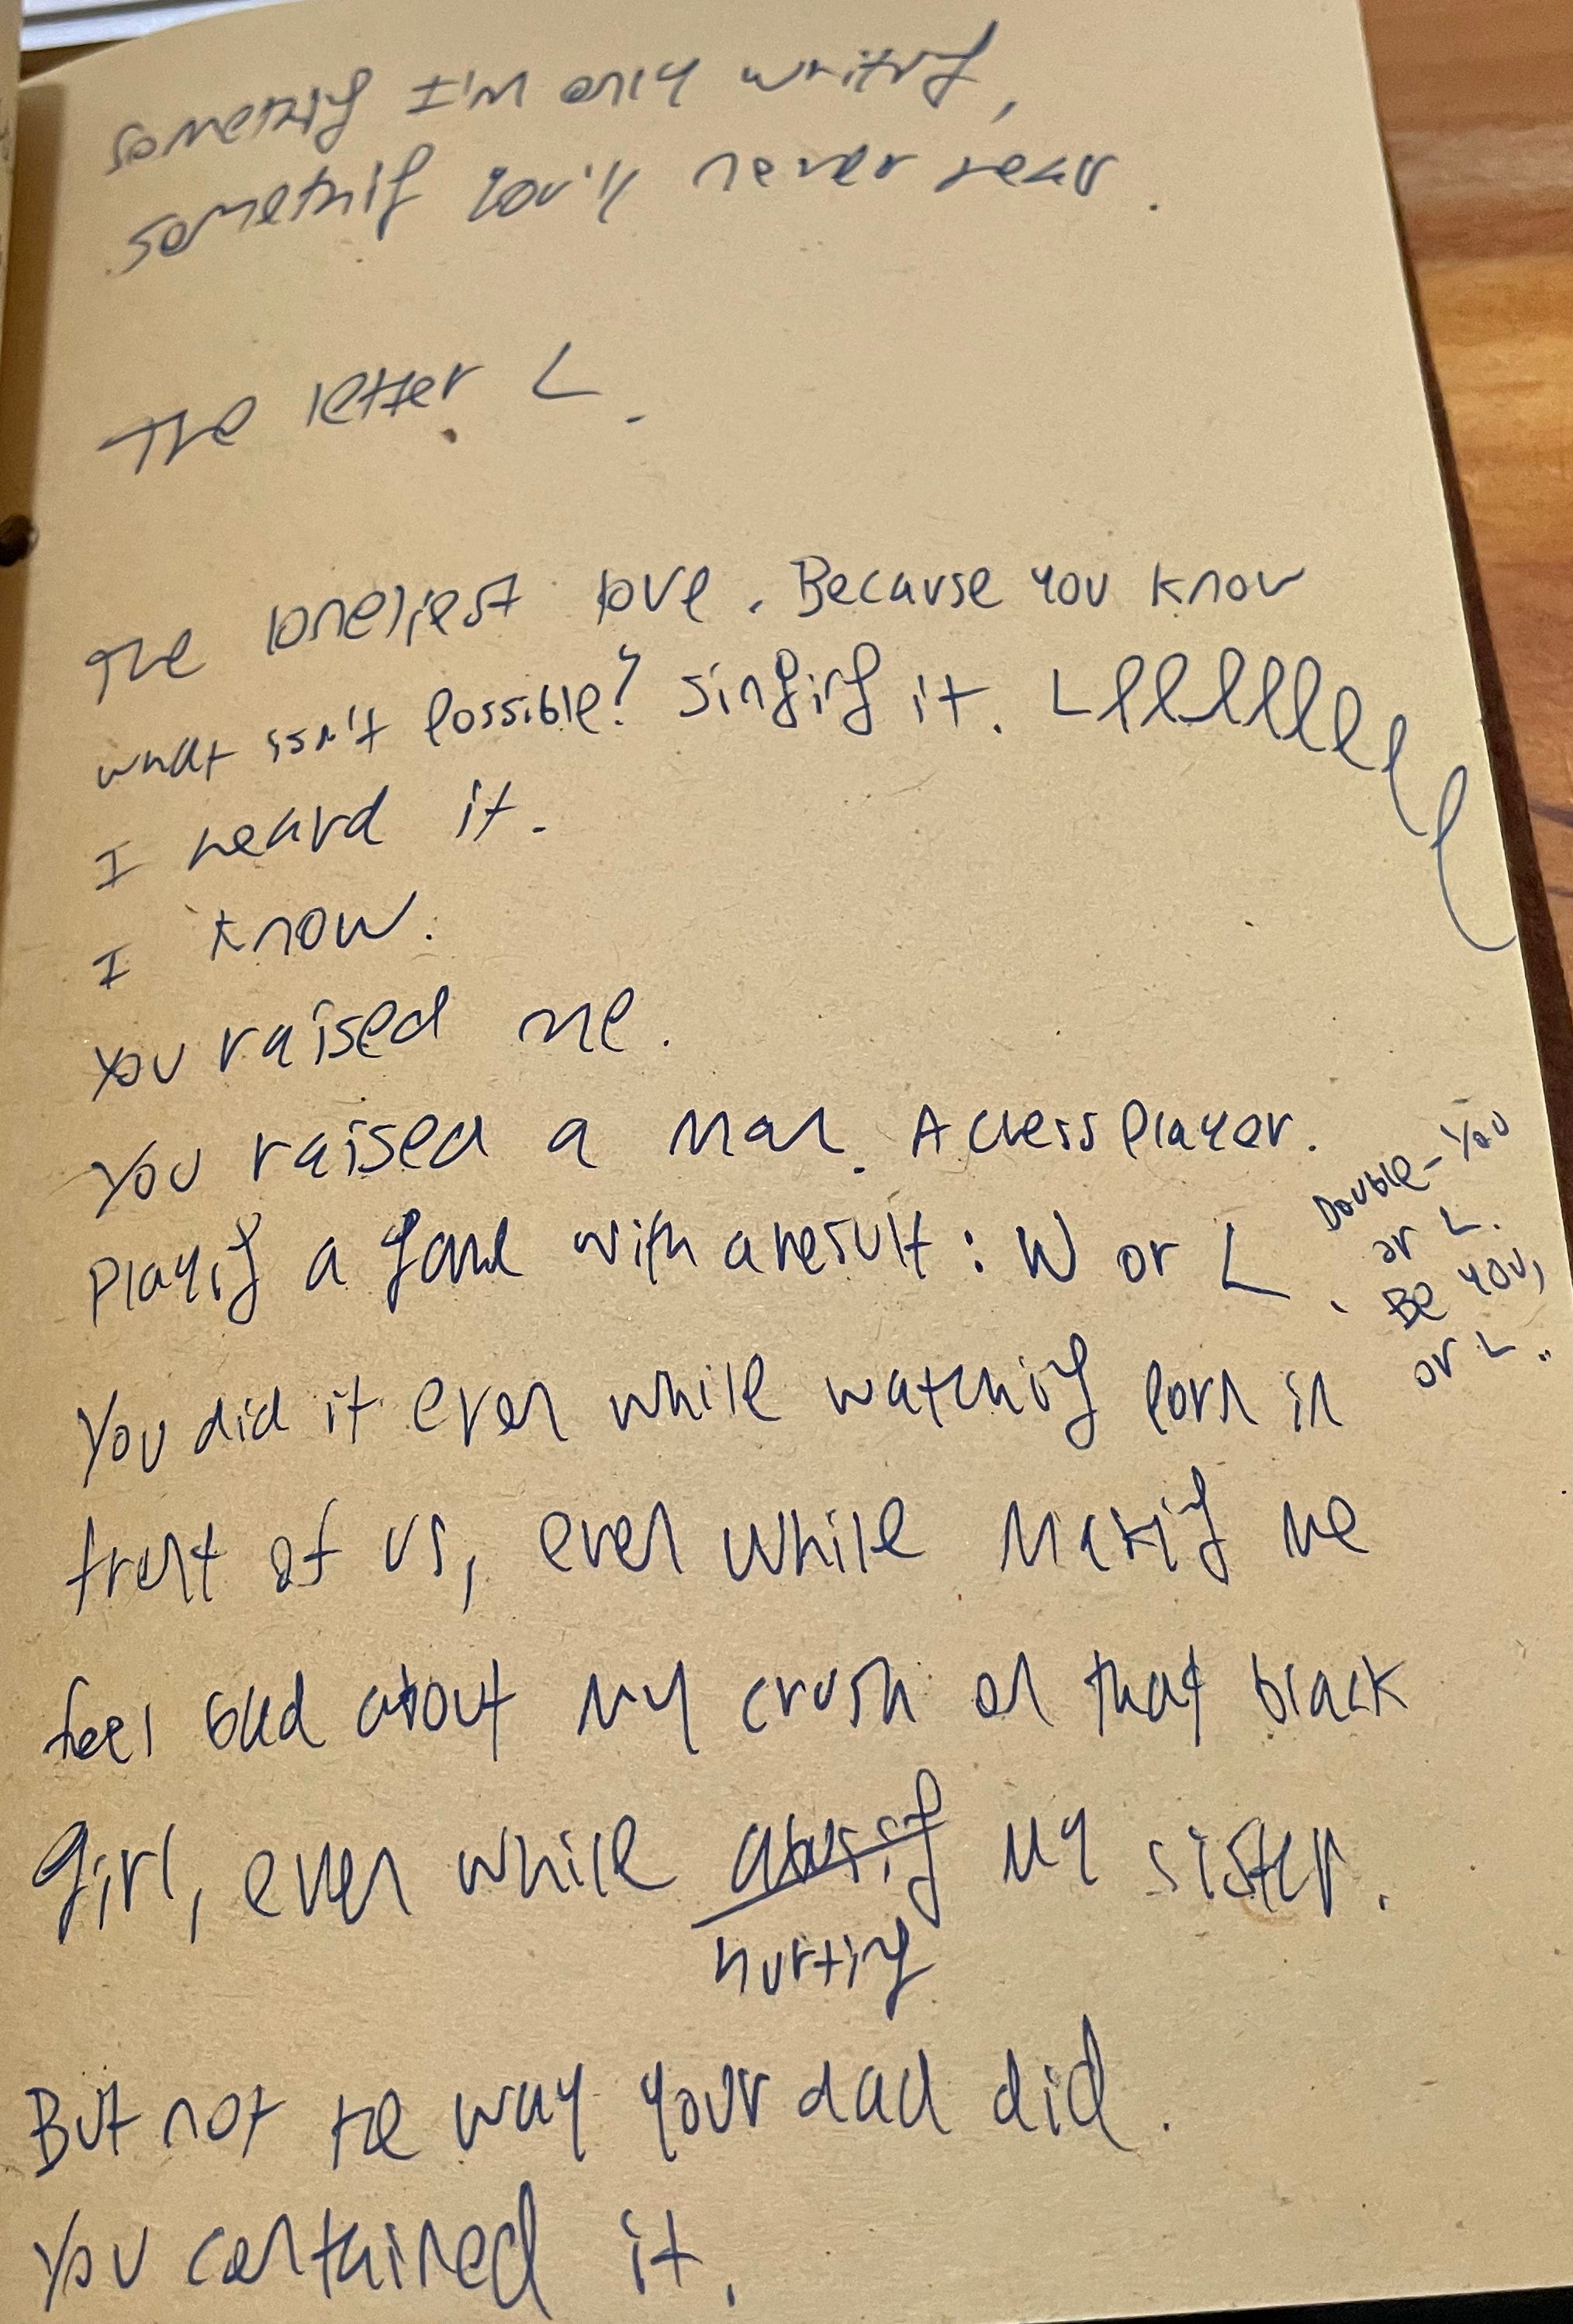 something I'm only writing,
something you'll never hear.
The letter L.
The loneliest love. Because you know
what isn't possible? Singing it. Lllllllllll
I heard it.
I know.
You raised me.
You raised a man. A chess player.
Playing a game with a result: W or L.
Double-You
or L.
Be you,
or L..
You did it even while watching porn in
front of us, even while making me
feel bad about my crush on that black
girl, even while abusing my sister.
hurting
But not the way your dad did.
You contained it.